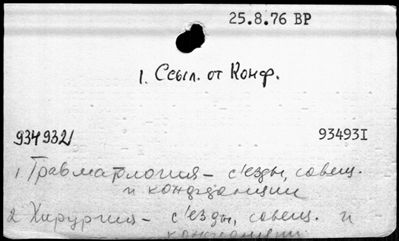 25.8.76 ВР
1. Ссыл. от Конф.
934932
934931
1 Травматология – съезды, совещ.
и конференции
2 Хирургия – съезды, совещ. и
конференции